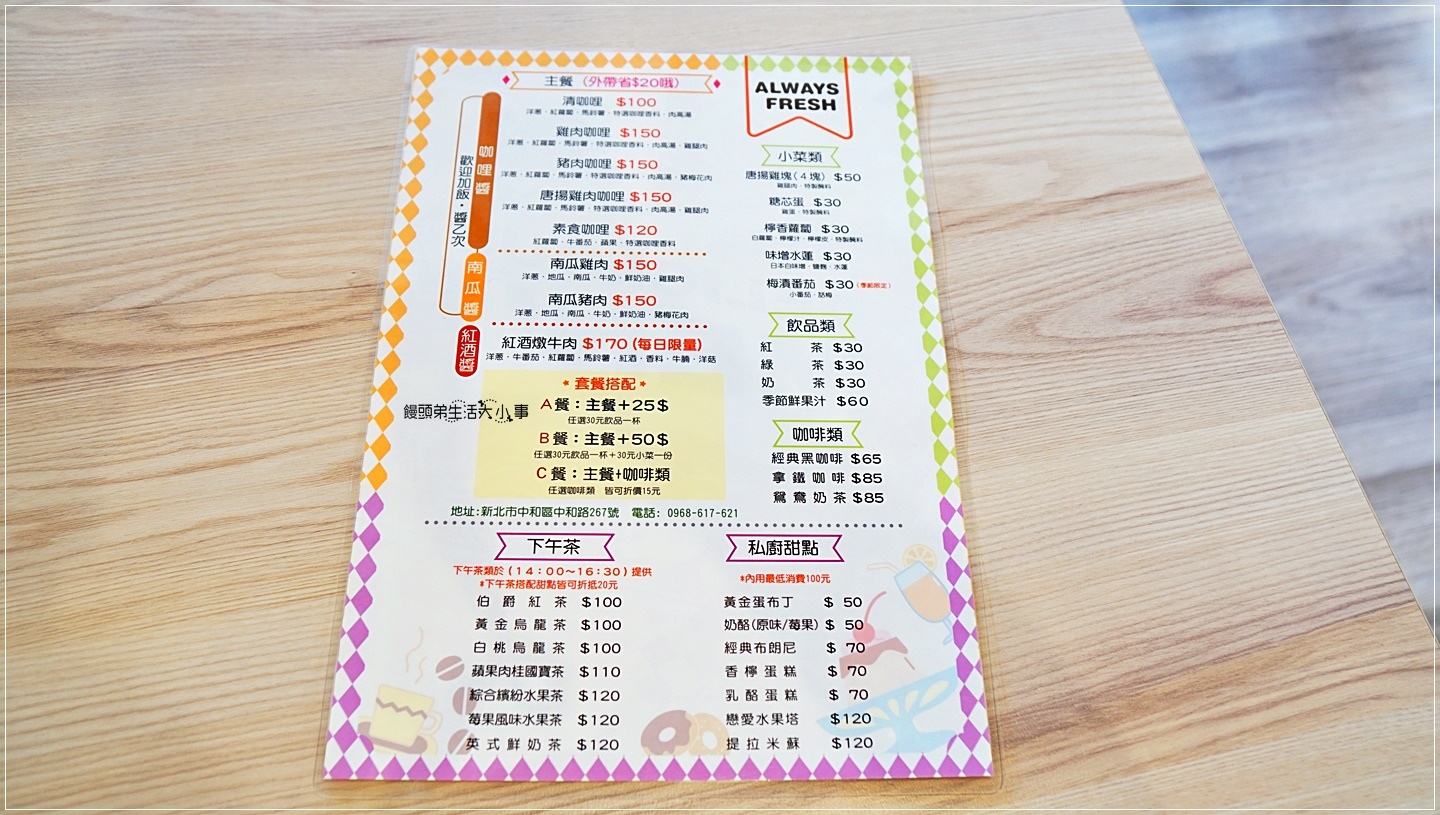 主餐 (外帶省$20哦)
咖哩醬
歡迎加飯·醬乙次
清咖哩 $100
洋蔥、紅蘿蔔、馬鈴薯、特選咖哩香料、肉高湯
雞肉咖哩 $150
洋蔥、紅蘿蔔、馬鈴薯、特選咖哩香料、肉高湯、雞腿肉
豬肉咖哩 $150
洋蔥、紅蘿蔔、馬鈴薯、特選咖哩香料、肉高湯、豬梅花肉
唐揚雞肉咖哩 $150
洋蔥、紅蘿蔔、馬鈴薯、特選咖哩香料、肉高湯、雞腿肉
素食咖哩 $120
紅蘿蔔、牛番茄、蘋果、特選咖哩香料
南瓜醬
南瓜雞肉 $150
洋蔥、地瓜、南瓜、牛奶、鮮奶油、雞腿肉
南瓜豬肉 $150
洋蔥、地瓜、南瓜、牛奶、鮮奶油、豬梅花肉
紅酒醬
紅酒燉牛肉 $170 (每日限量)
洋蔥、牛番茄、紅蘿蔔、馬鈴薯、紅酒、香料、牛腩、洋菇
*套餐搭配*
A餐：主餐+25$
任選30元飲品一杯
B餐：主餐+50$
任選30元飲品一杯+30元小菜一份
C餐：主餐+咖啡類
任選咖啡類 皆可折價15元
饅頭弟生活大小事
ALWAYS
FRESH
小菜類
唐揚雞塊(4塊) $50
雞腿肉、特製醃料
糖芯蛋 $30
雞蛋、特製醃料
檸香蘿蔔 $30
白蘿蔔、檸檬汁、檸檬皮、特製醃料
味增水蓮 $30
日本白味增、鹽麴、水蓮
梅漬番茄 $30 (季節限定)
小番茄、話梅
飲品類
紅茶 $30
綠茶 $30
奶茶 $30
季節鮮果汁 $60
咖啡類
經典黑咖啡 $65
拿鐵咖啡 $85
鴛鴦奶茶 $85
地址:新北市中和區中和路267號 電話: 0968-617-621
下午茶
下午茶類於(14:00~16:30)提供
*下午茶搭配甜點皆可折抵20元
伯爵紅茶 $100
黃金烏龍茶 $100
白桃烏龍茶 $100
蘋果肉桂國寶茶 $110
綜合繽紛水果茶 $120
莓果風味水果茶 $120
英式鮮奶茶 $120
私廚甜點
*內用最低消費100元
黃金蛋布丁 $ 50
奶酪(原味/莓果) $ 50
經典布朗尼 $ 70
香檸蛋糕 $ 70
乳酪蛋糕 $ 70
戀愛水果塔 $120
提拉米蘇 $120